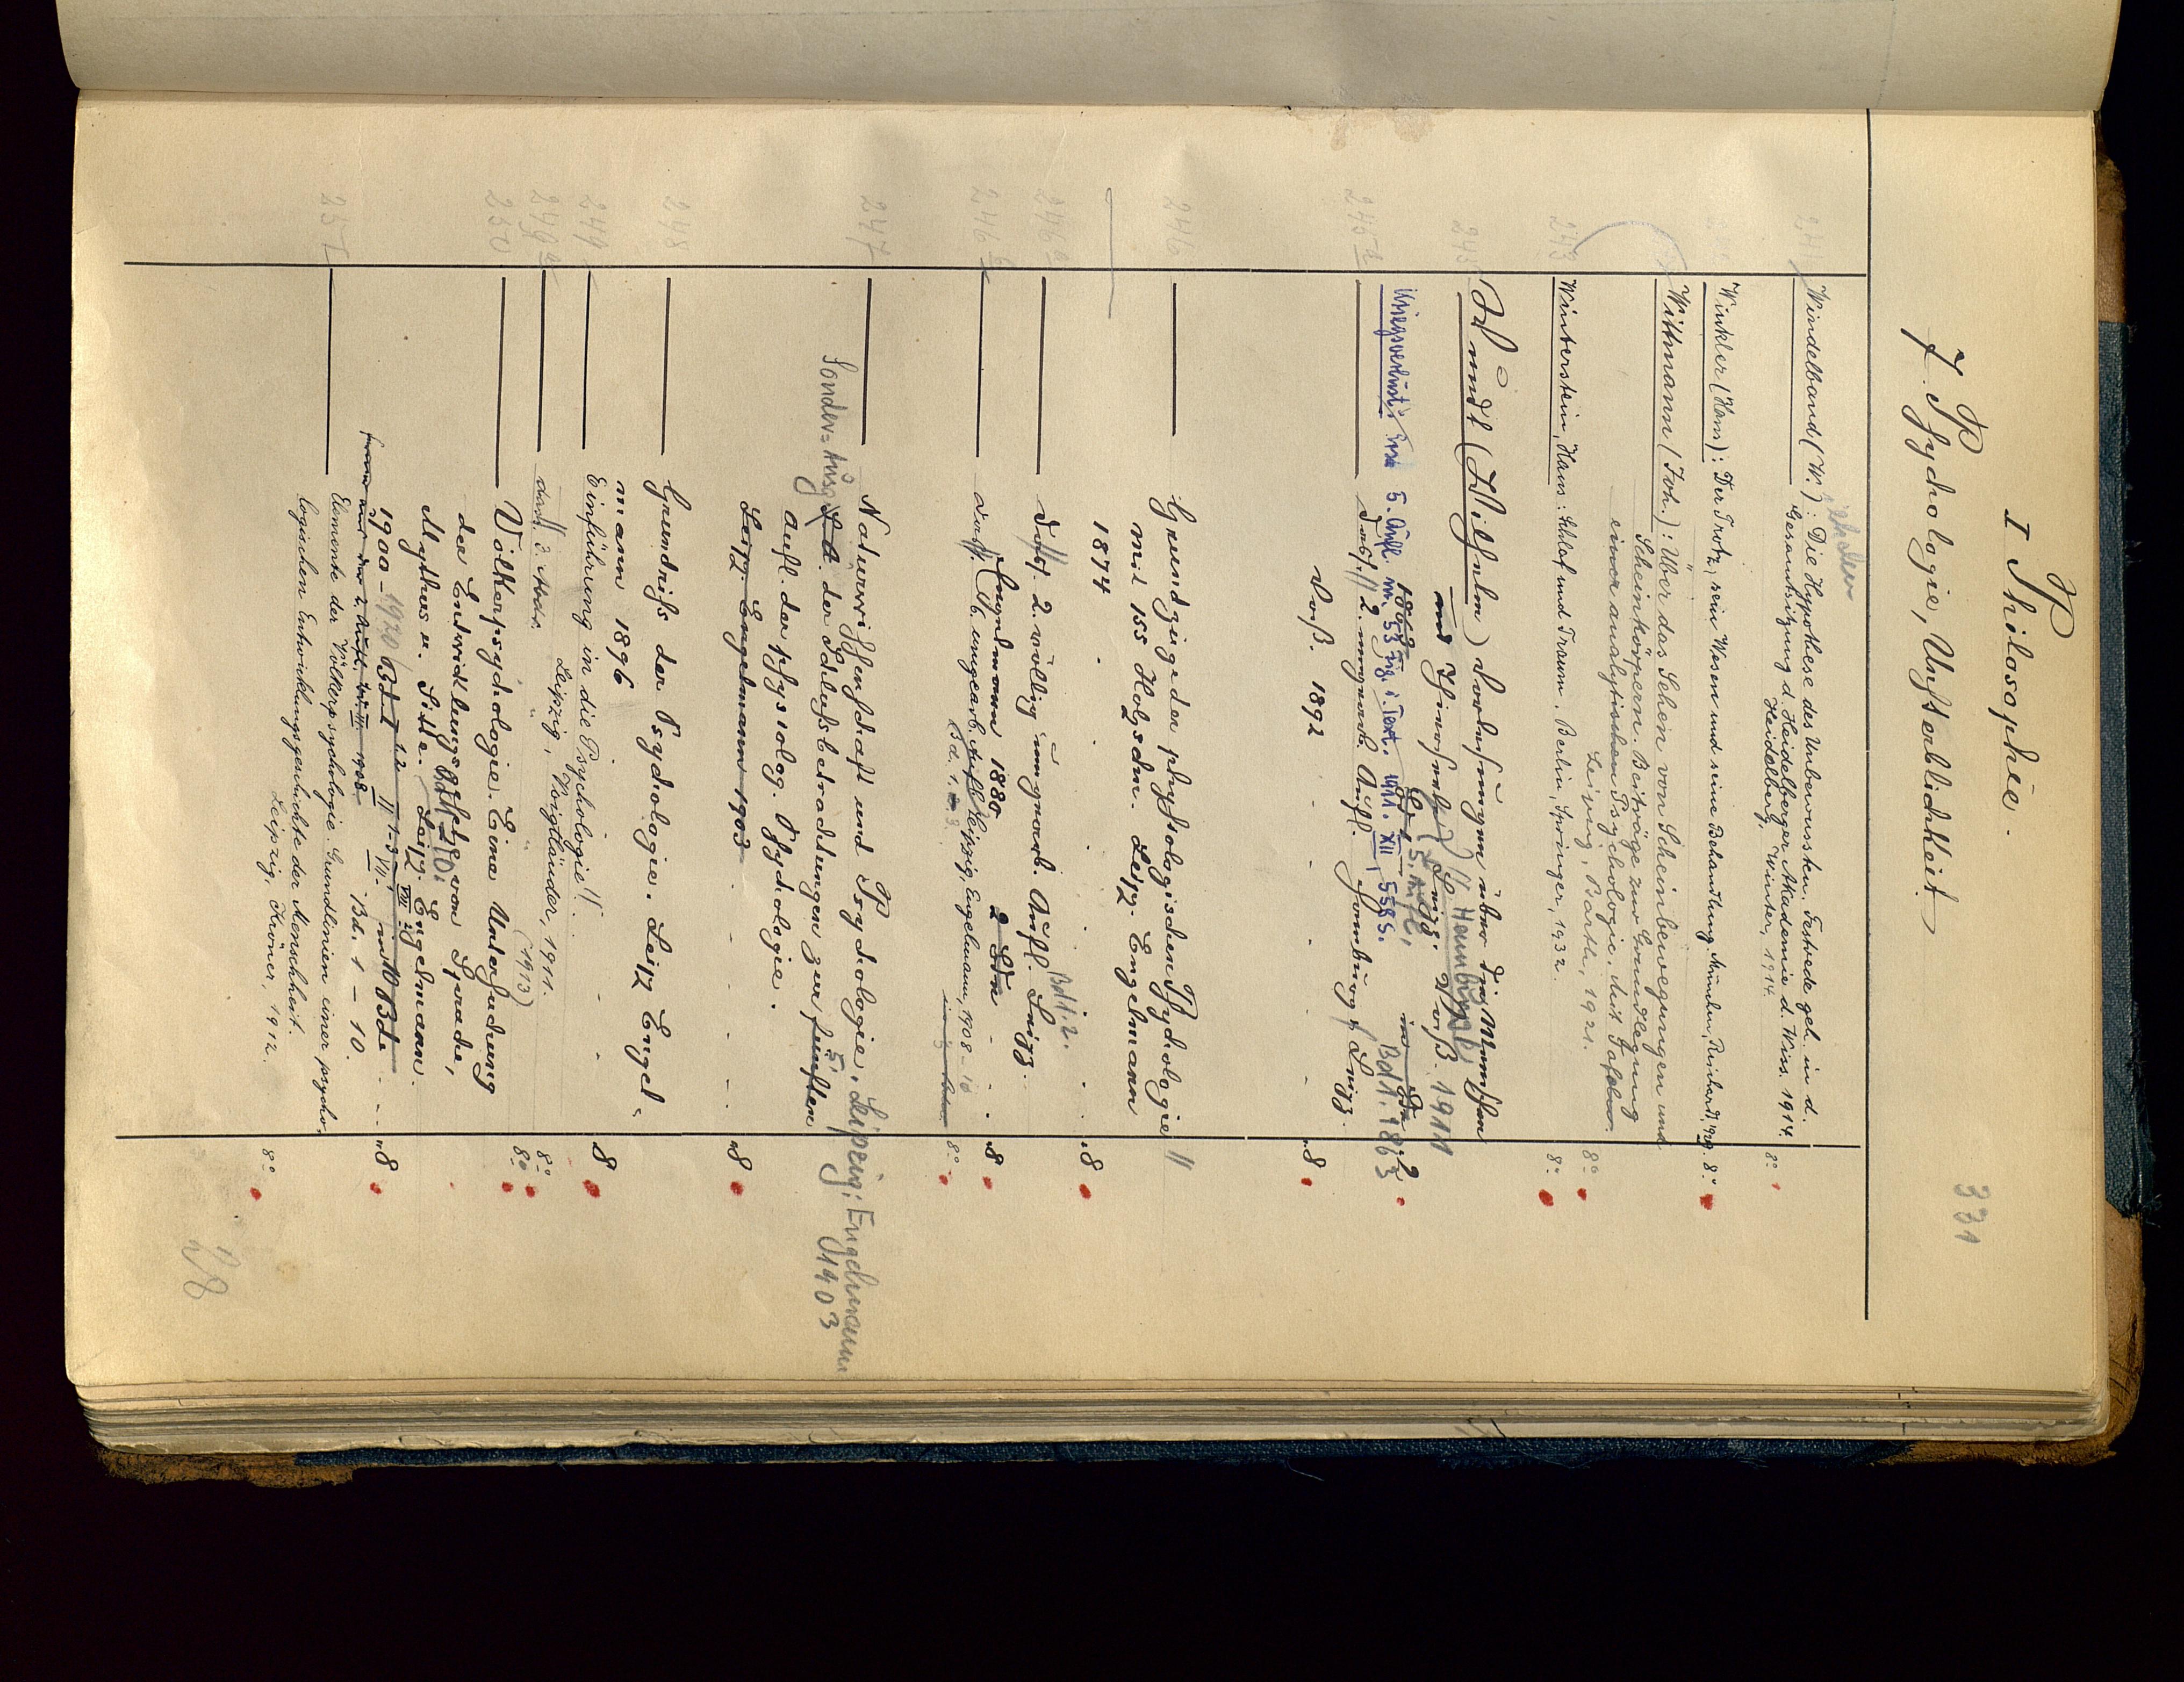 331
I Philosophie.
7. Psychologie, Unsterblichkeit
241 Windelband (W.): Die Hypothese des Unbewussten. Festrede geh. in d.
Gesamtsitzung d. Heidelberger Akademie d. Wiss. 1914.
Heidelberg, Winter, 1914. 8°
Winkler (Hans): Der Trotz, sein Wesen und seine Behandlung. München, Reinhardt, 8°
Wittmann (Joh.): Über das Sehen von Scheinbewegungen und
Scheinkörpern. Beiträge zur Grundlegung
einer analytischen Psychologie. Mit Tafeln.
Leipzig, Barth, 1921. 8°
243 Winterstein, Hans: Schlaf und Traum. Berlin, Springer, 1932. 8°
245 Wundt (Wilhelm) Vorlesungen über die Menschen
und Thierseele // Leipz. Voß. 1911
Hamburg
5. Aufl.
1863 Bd 1. 1863
Kriegsverlust: 5. Aufl. m. 53 Fig. i. Text. 1911. XII, 558 S.
245a — Dass. // 2. umgearb. Aufl. Hamburg & Leipz.
Voß. 1892 8
246 — Grundzüge der physiologischen Psychologie //
mit 155 Holzschn. Leipz. Engelmann
1874 8
246a — Dass. 2. völlig umgearb. Aufl. Leipz.
Engelmann 1880 2 Bde 8
Bd 1. 2.
246b — Dass. // 6. umgearb. Aufl. Leipzig, Engelmann, 1908-10
Bd. 1.-3. 8°
247 — Naturwissenschaft und Psychologie. Leipzig: Engelmann
1903
Sonder-Ausg. der Schlußbetrachtungen zur fünften 5.
Aufl. der physiolog. Psychologie.
Leipz. Engelmann 1903 8
248 — Grundriss der Psychologie. Leipz Engel-
mann 1896 8
249 — Einführung in die Psychologie //.
Leipzig, Voigtländer, 1911. 8°
249a — dass. // 3. Abdr. (1913) 8°
250 — Völkerpsychologie. Eine Untersuchung
der Entwicklungsgesetze von Sprache,
Mythus u. Sitte. Leipz. Engelmann.
1900-1920 Bd. 1-10. 8
251 — Elemente der Völkerpsychologie. Grundlinien einer psycho-
logischen Entwicklungsgeschichte der Menschheit.
Leipzig, Kröner, 1912. 8°
28